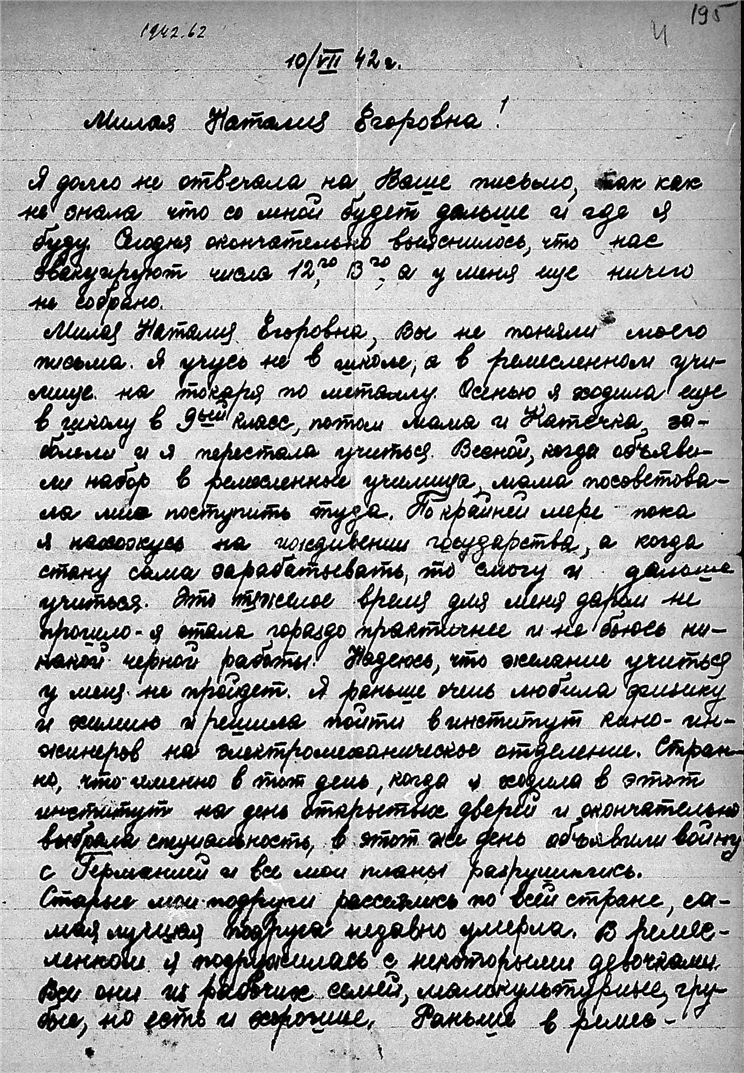 195
Ч
1942.62
10/VII 42 г.
Милая Наталия Егоровна!
Я долго не отвечала на Ваше письмо, так как
не знала что со мной будет дальше и где я
буду. Сегодня окончательно выяснилось, что нас
эвакуируют числа 12го, 13го, а у меня еще ничего
не собрано.
Милая Наталия Егоровна, Вы не поняли моего
письма. Я учусь не в школе, а в ремесленном учи-
лище на токаря по металлу. Осенью я ходила еще
в школу в 9ый класс, потом мама и Катечка за-
болели и я перестала учиться. Весной, когда объяви-
ли набор в ремесленные училища, мама посоветова-
ла мне поступить туда. По крайней мере пока
я нахожусь на иждивении государства, а когда
стану сама зарабатывать, то смогу и дальше
учиться. Это тяжелое время для меня даром не
прошло - я стала гораздо практичнее и не боюсь ни-
какой черной работы. Надеюсь, что желание учиться
у меня не пройдет. Я раньше очень любила физику
и химию и решила пойти в институт кино-ин-
женеров на электромеханическое отделение. Стран-
но, что именно в тот день, когда я ходила в этот
институт на день открытых дверей и окончательно
выбрала специальность, в этот же день объявили войну
с Германией и все мои планы разрушились.
Старые мои подруги рассеялись по всей стране, са-
мая лучшая подруга недавно умерла. В ремес-
ленном я подружилась с некоторыми девочками.
Все они из рабочих семей, малокультурные, гру-
бые, но есть и хорошие. Раньше в ремес-